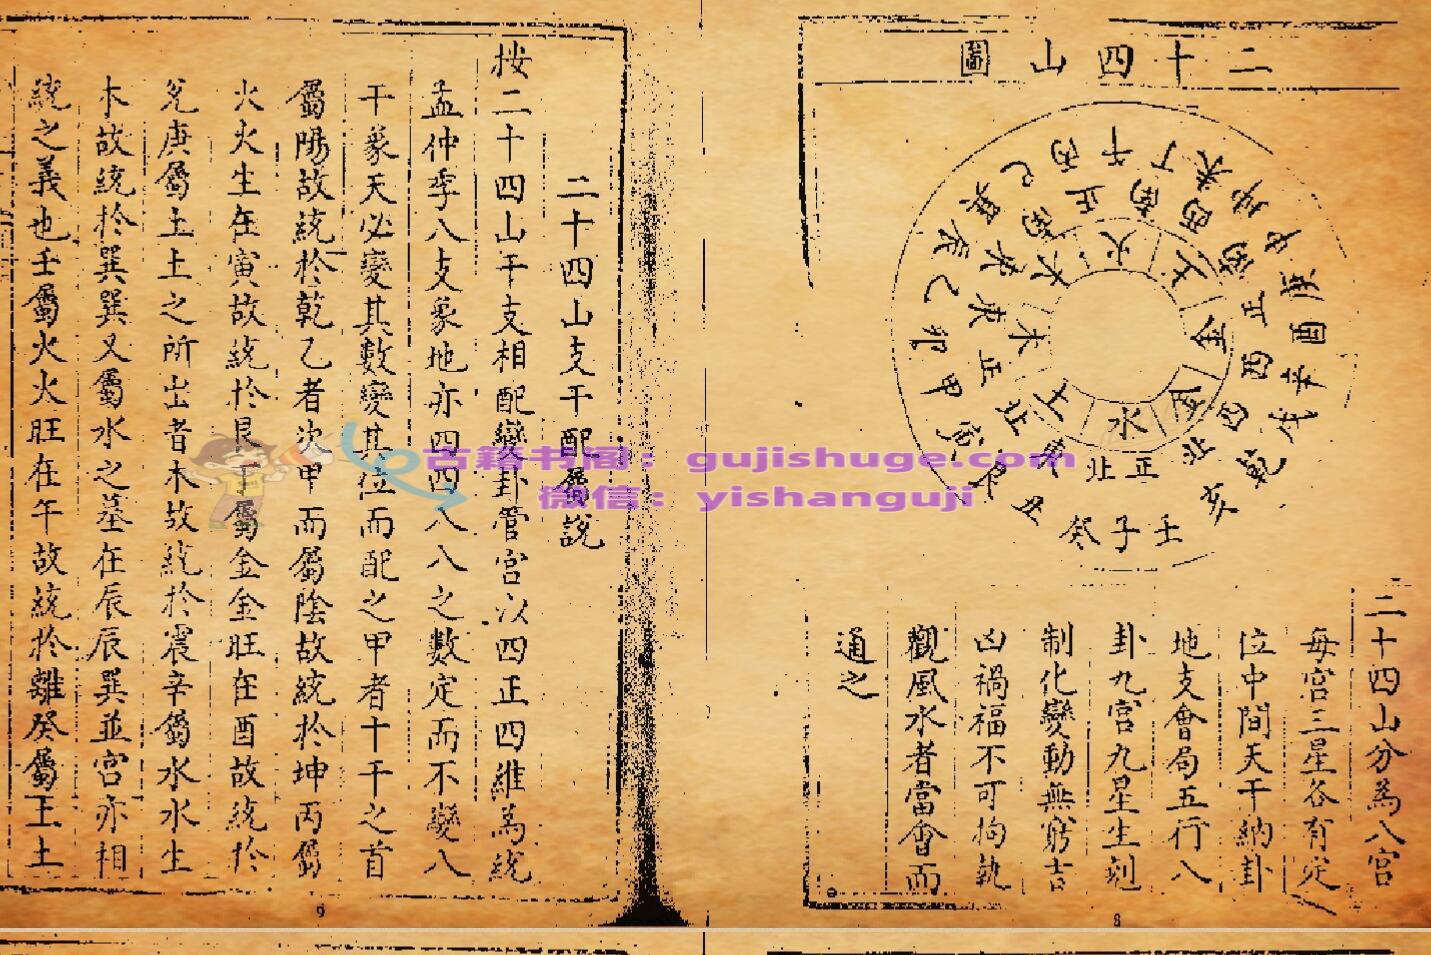 二十四山圖
壬子癸丑艮寅甲卯乙辰巽巳丙午丁未坤申庚酉辛戌乾亥
正北
東北
正東
東南
正南
西南
正西
西北
水土木木火土金金
二十四山分為八宮
每宮三星各有定
位中間天干納卦
地支會局五行八
卦九宮九星生剋
制化變動無窮吉
凶禍福不可拘執
觀風水者當會而
通之
8
二十四山支干配屬說
按二十四山干支相配變卦管宮以四正四維為統
孟仲季八支象地亦四四八八之數定而不變八
干象天必變其數變其位而配之甲者十干之首
屬陽故統於乾乙者次甲而屬陰故統於坤丙屬
火火生在寅故統於艮丁屬金金旺在酉故統於
兌庚屬土土之所出者木故統於震辛屬水水生
木故統於巽巽又屬水之墓在辰辰巽並宮亦相
統之義也壬屬火火旺在午故統於離癸屬王土
9
古籍书阁：gujishuge.com
微信：yishanguji